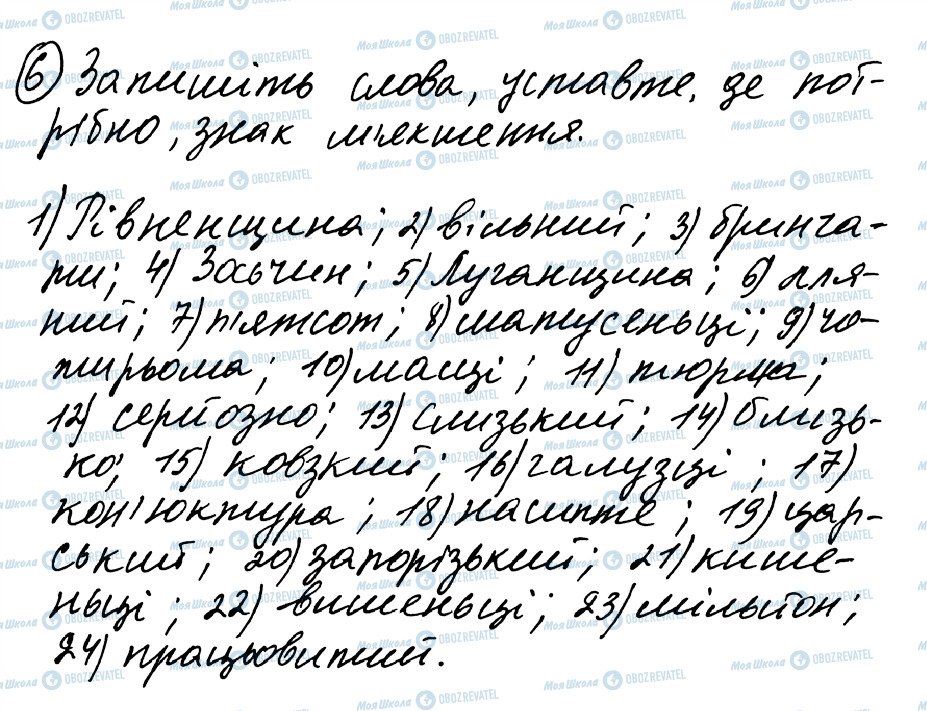 6 Запишіть слова, уставте, де пот-
рібно, знак м'якшення.
1) Рівненщина; 2) вільний; 3) бринча-
ти; 4) Зосьчин; 5) Луганщина; 6) лля-
ний; 7) п'ятсот; 8) матусеньці; 9) чо-
тирьома; 10) мащі; 11) тюрма;
12) серйозно; 13) слизький; 14) близь-
ко; 15) ковзкий; 16) галузці; 17)
кон'юктура; 18) насипте; 19) цар-
ський; 20) запорізький; 21) кише-
ньці; 22) вишеньці; 23) мільйон;
24) працьовитий.